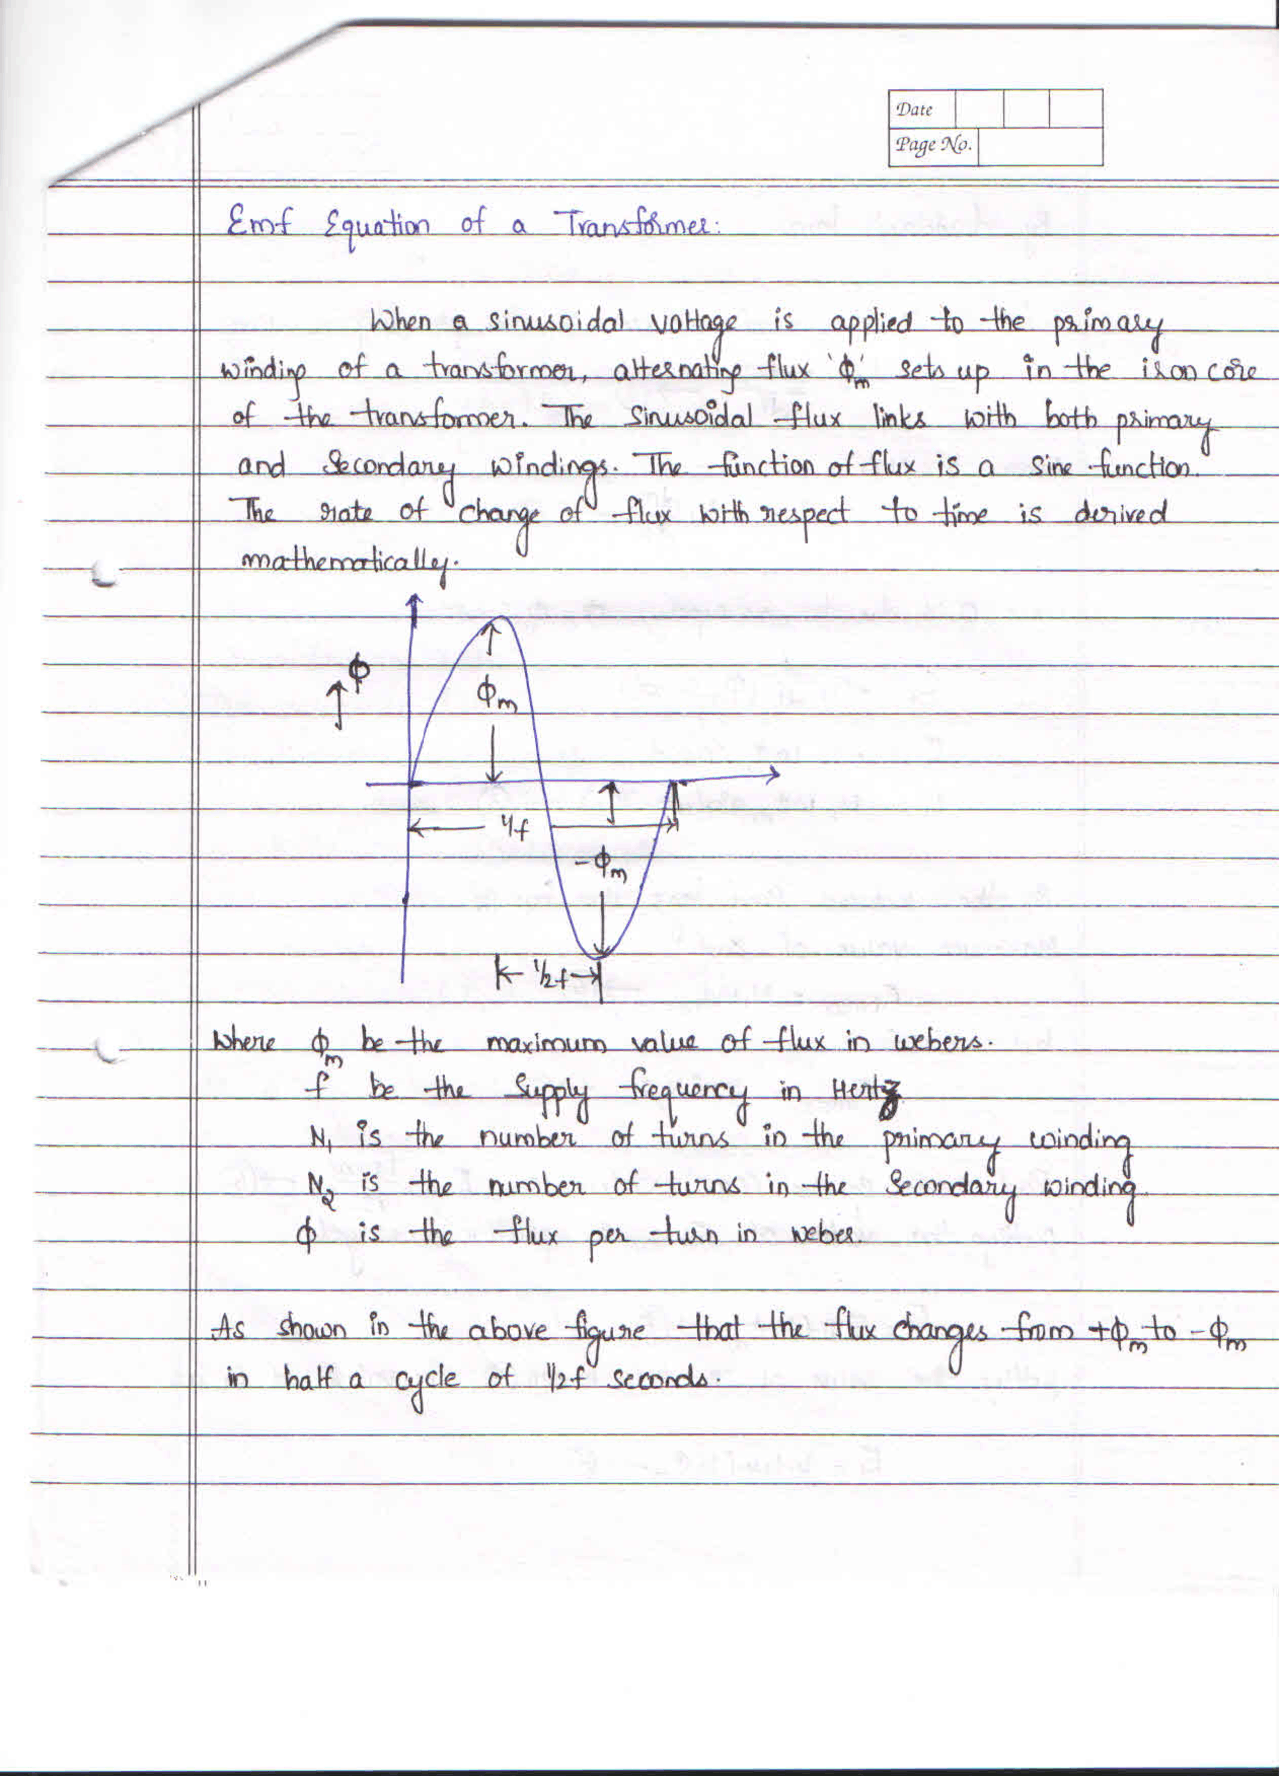 Date
Page No.
Emf Equation of a Transformer:
When a sinusoidal voltage is applied to the primary
winding of a transformer, alternating flux 'ϕm' sets up in the iron core
of the transformer. The sinusoidal flux links with both primary
and secondary windings. The function of flux is a sine function.
The rate of change of flux with respect to time is derived
mathematically.
ϕ
ϕm
1/f
-ϕm
1/2f
Where ϕm be the maximum value of flux in webers.
f be the supply frequency in Hertz
N1 is the number of turns in the primary winding
N2 is the number of turns in the secondary winding.
ϕ is the flux per turn in weber
As shown in the above figure that the flux changes from +ϕm to -ϕm
in half a cycle of 1/2f seconds.